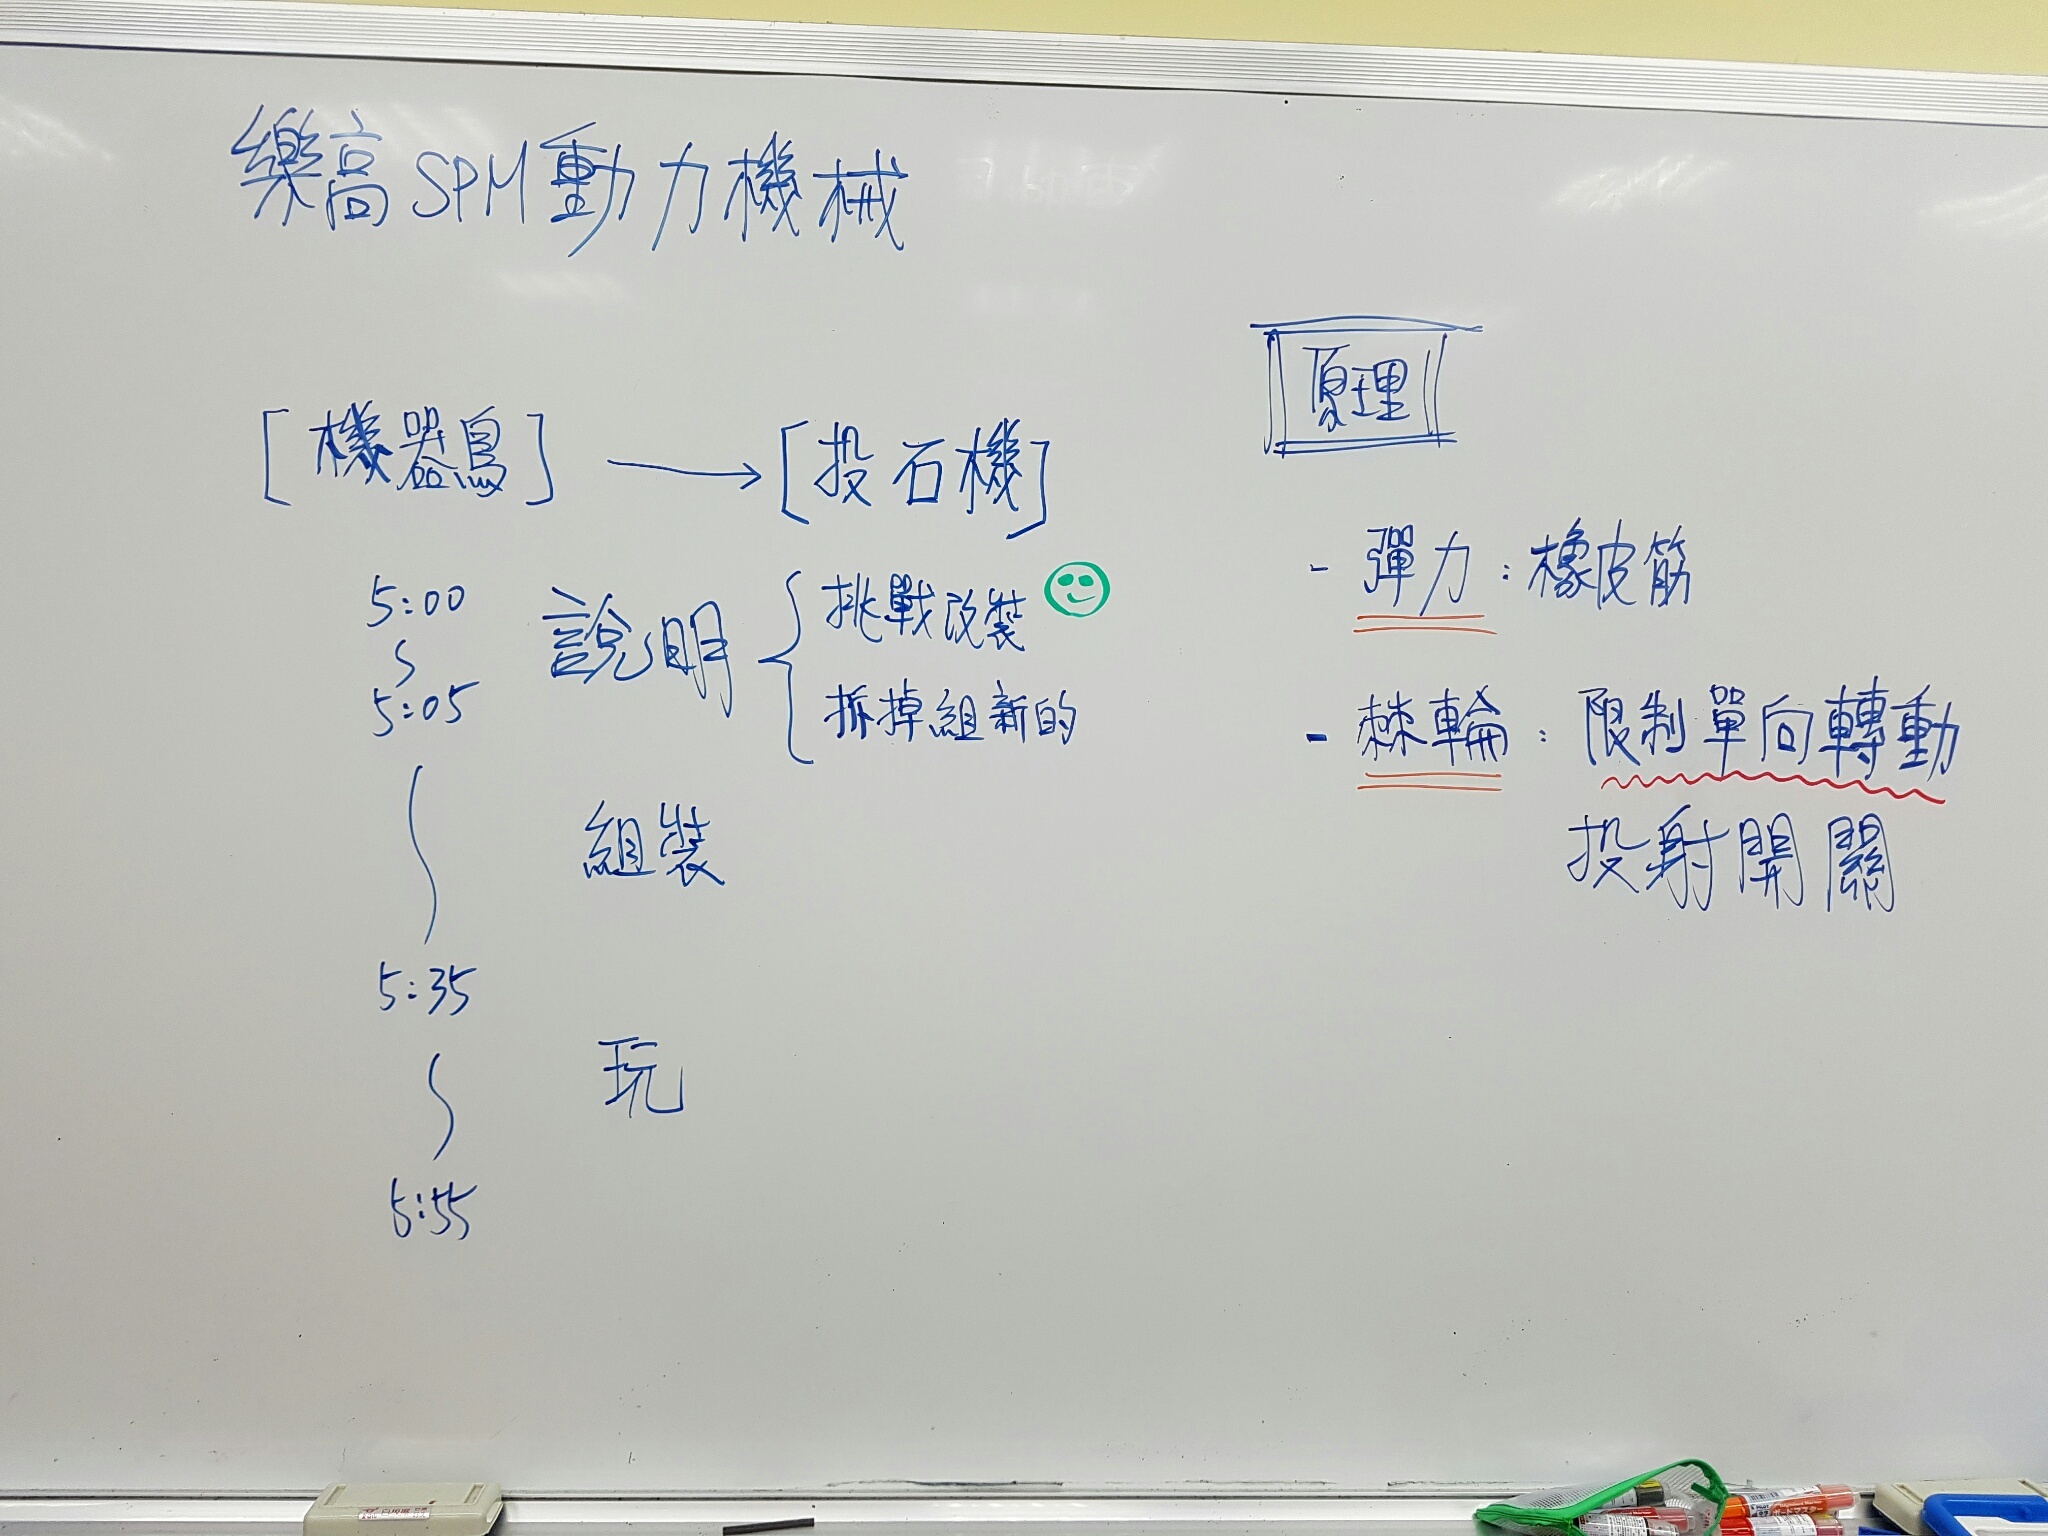 樂高SPM動力機械
[機器鳥] → [投石機]
5:00
~
5:05
說明 { 挑戰改裝
拆掉組新的
組裝
5:35
玩
5:55
原理
- 彈力：橡皮筋
- 棘輪：限制單向轉動
投射開關